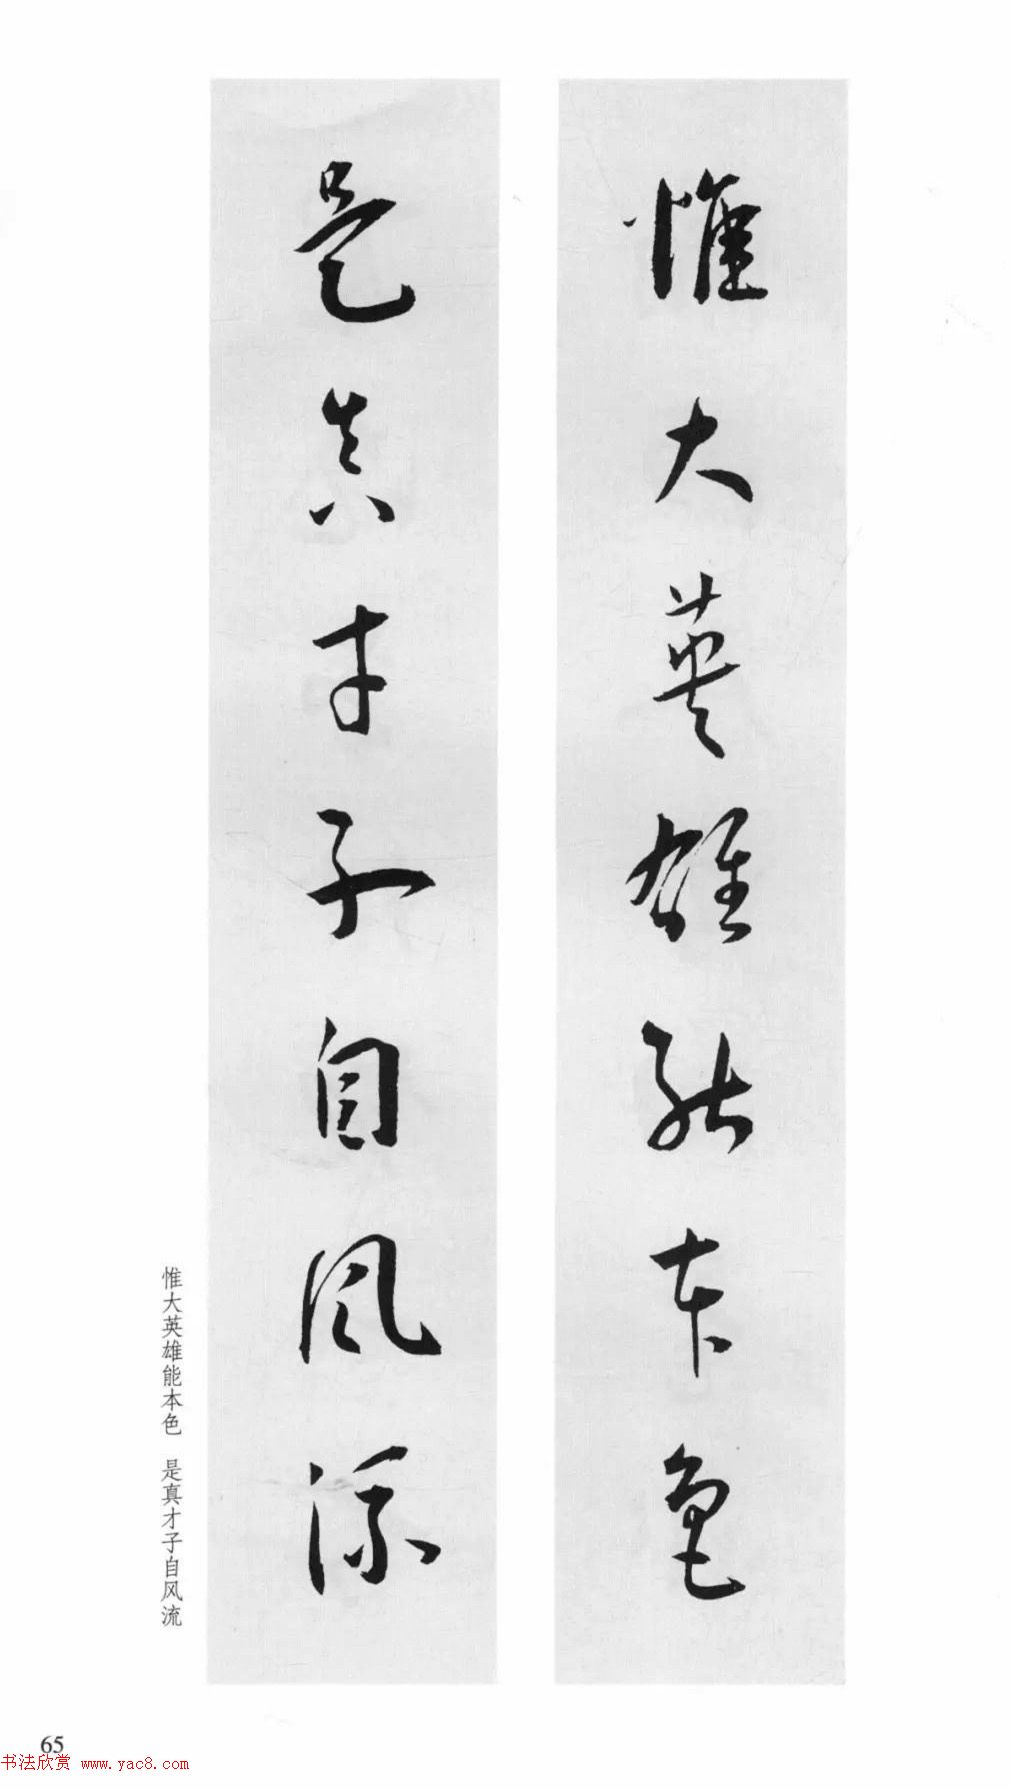 惟大英雄能本色
是真才子自风流
惟大英雄能本色　是真才子自风流
65
书法欣赏 www.yac8.com